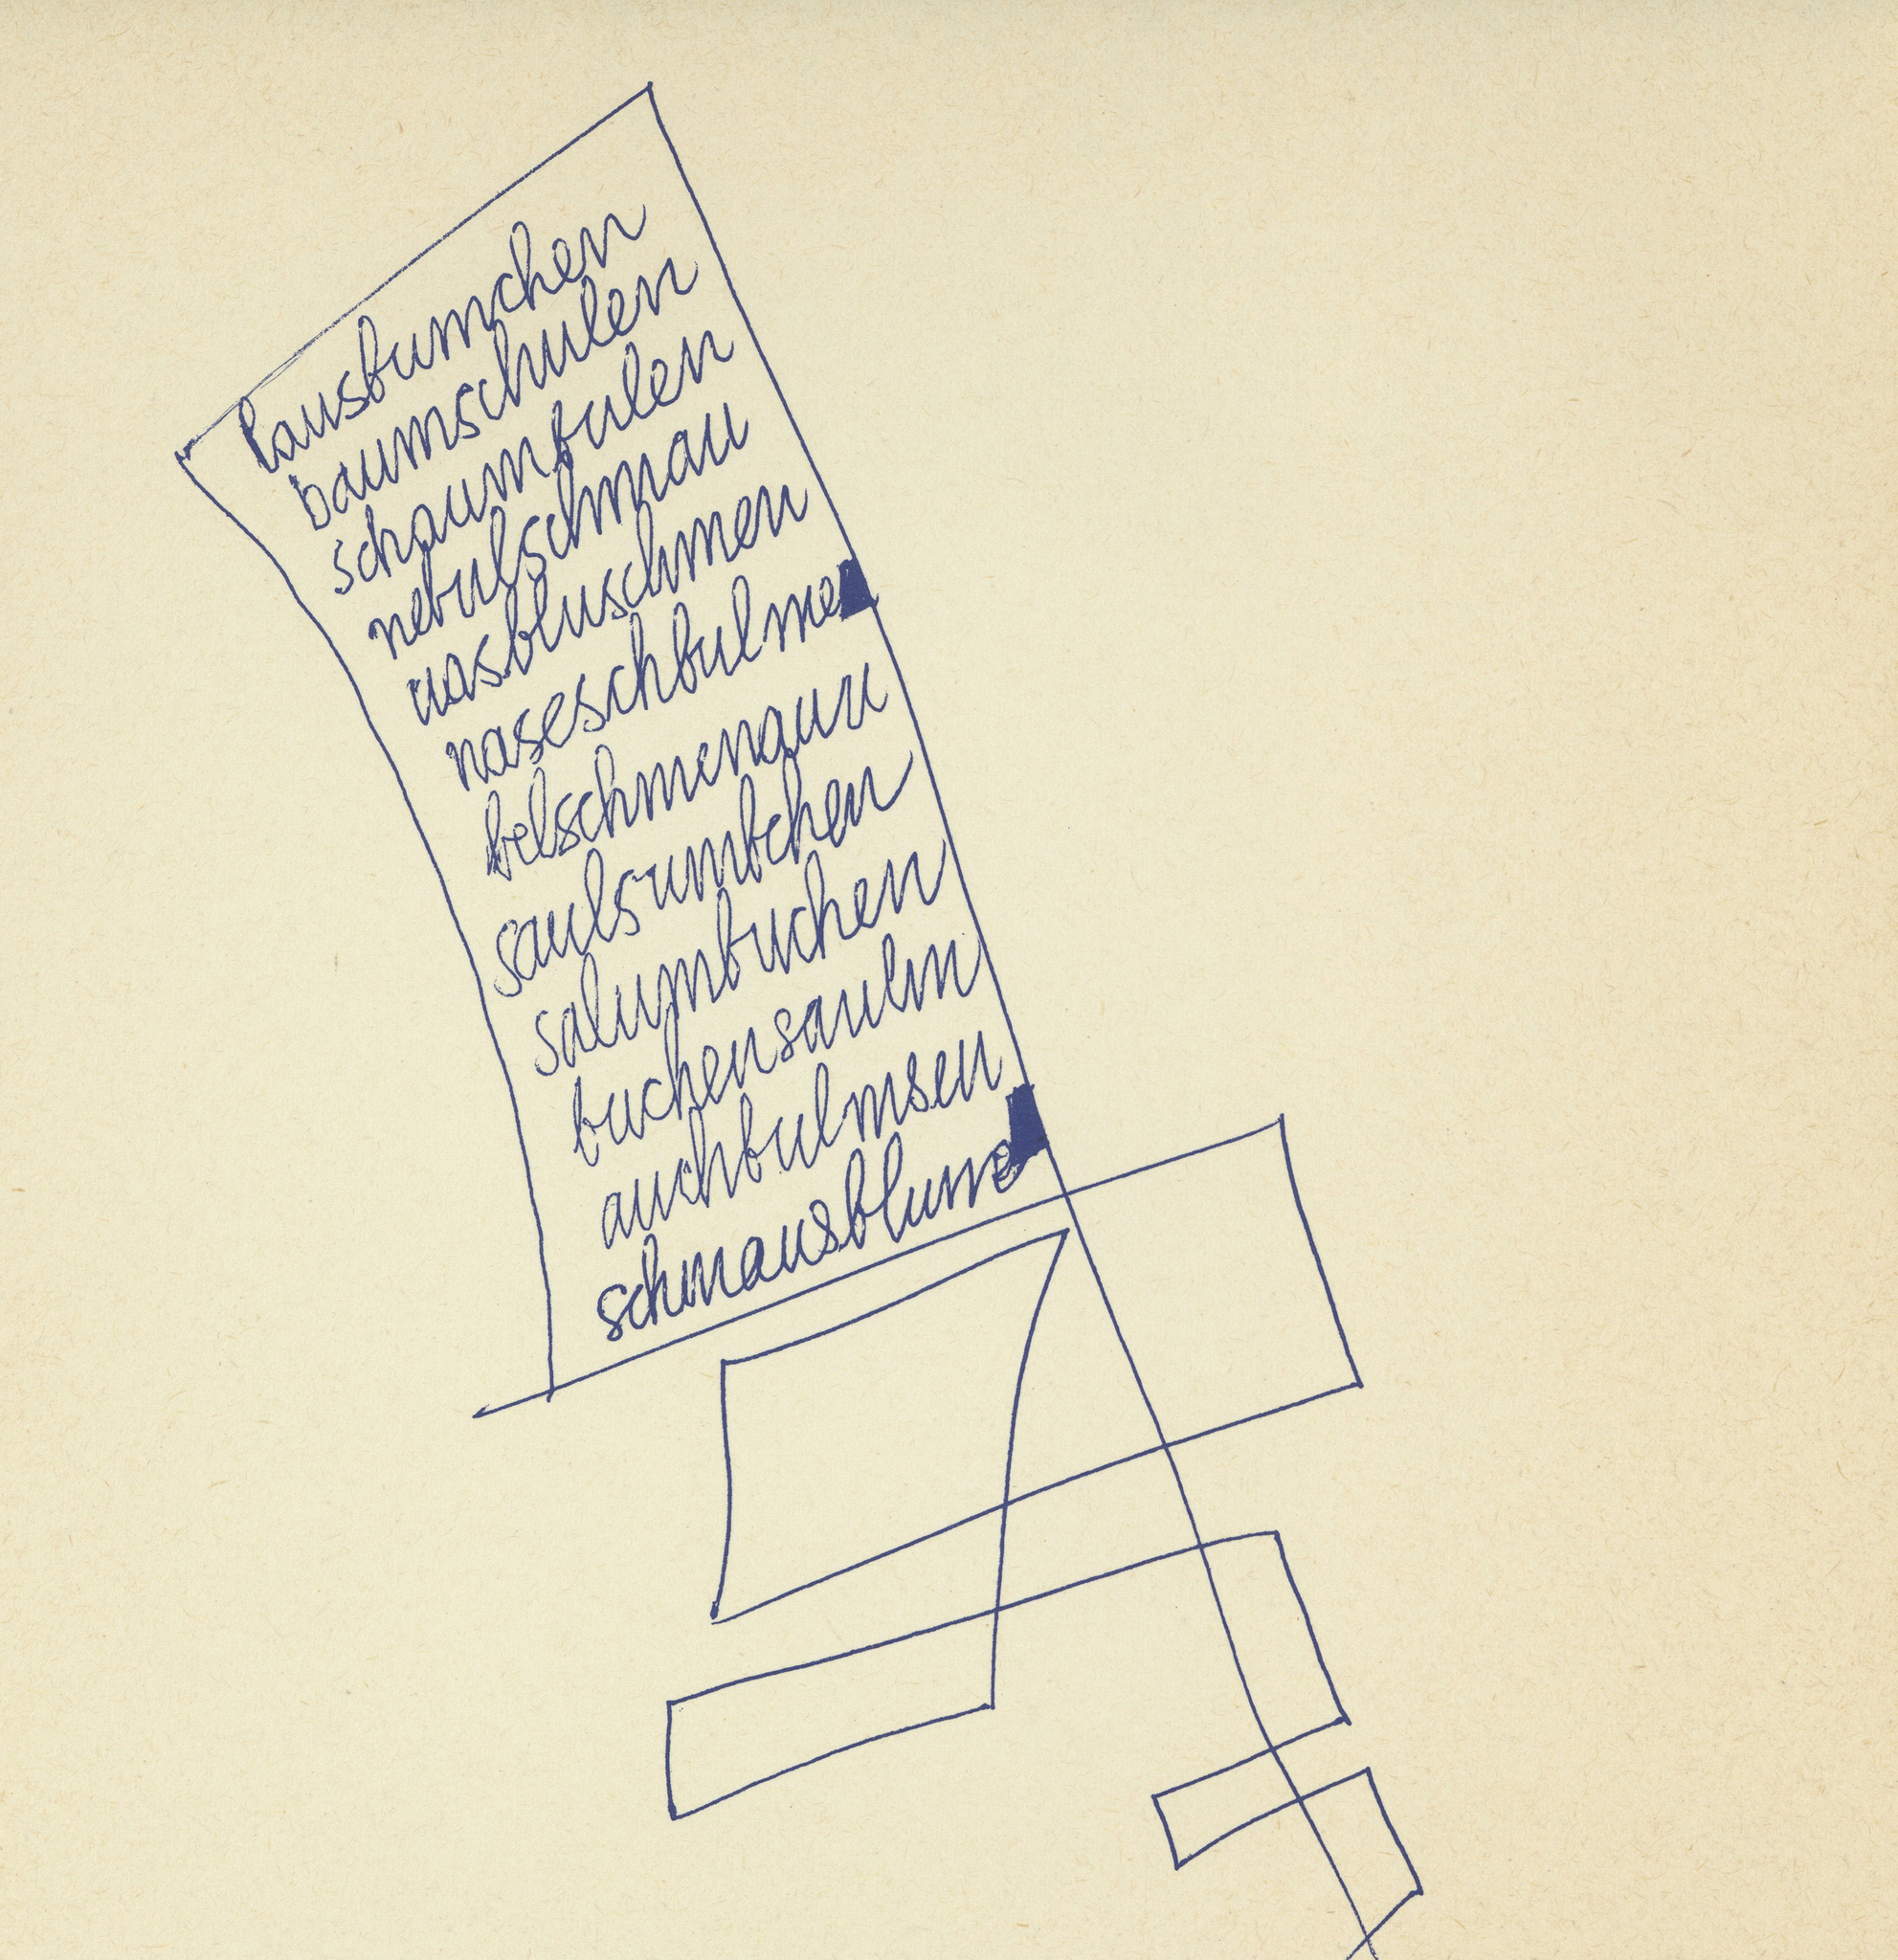 lausbumchen
baumschulen
schaumbulen
nebulschmau
uasbluschmen
naseschbulme
belschmenauu
saulsumbchen
salumbuchen
buchensaulm
auchbulmsen
schmausblume